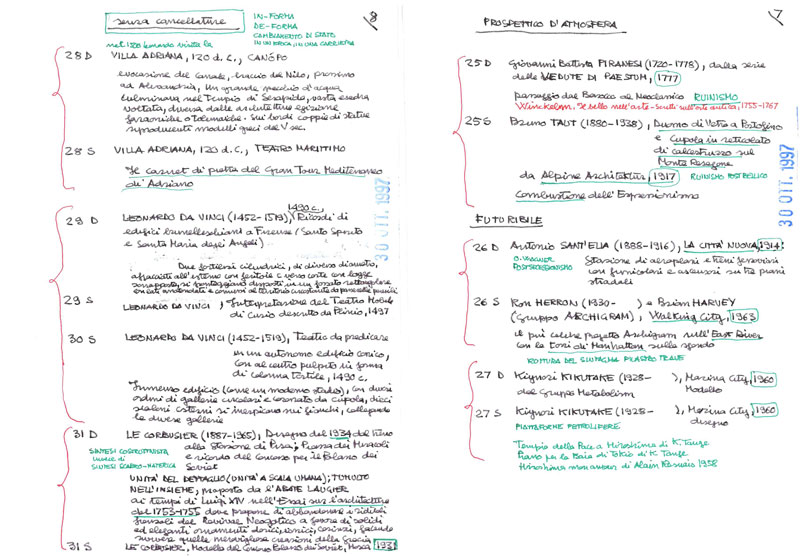 senza cancellature
IN-FORMA
DE-FORMA
CAMBIAMENTO DI STATO
IN UN'EPOCA, IN UNA CARRIERA
8
nel 1501 Leonardo visita la
28 D VILLA ADRIANA, 120 d.C., CANÒPO
evocazione del Canale, braccio del Nilo, prossimo
ad Alessandria. Un grande specchio d'acqua
culminava nel Tempio di Serapide, vasta esedra
voltata, diversa dalle architetture egiziane
faraoniche o tolemaiche. Sui bordi coppie di statue
riproducenti modelli greci del V sec.
28 S VILLA ADRIANA, 120 d.C., TEATRO MARITTIMO
Il carnet di pietra del Gran Tour Mediterraneo
di Adriano
30 OTT. 1997
29 D LEONARDO DA VINCI (1452-1519), 1490 c., Ricordi di
edifici brunelleschiani a Firenze (Santo Spirito
e Santa Maria degli Angeli)
Due fortezze cilindriche, di diverso diametro,
29 S LEONARDO DA VINCI, Interpretazione del Teatro Mobile
di Curio descritto da Plinio, 1497
30 S LEONARDO DA VINCI (1452-1519), Teatro da predicare
in un autonomo edificio conico,
con al centro pulpito in forma
di colonna tortile, 1490 c.
Immenso edificio (come un moderno stadio), con dieci
ordini di gallerie circolari e coronato da cupola, dieci
scaloni esterni si inerpicano sui fianchi, collegando
le diverse gallerie
31 D LE CORBUSIER (1887-1965), Disegno del 1934 dal treno
alla stazione di Pisa; Piazza dei Miracoli
e ricordo del Concorso per il Palazzo dei
Soviet
SINTESI COSTRUTTIVISTA
SINTESI PLASTICO-MATERICA
UNITA' DEL DETTAGLIO (UNITÀ A SCALA UMANA); TUMULTO
NELL'INSIEME; proposto da l'ABATE LAUGIER
ai tempi di Luigi XIV nell'Essai sur l'architecture
del 1753-1755 dove propone di abbandonare i ridicoli
fronzoli del Revival Neogotico a favore di solidi
ed eleganti ornamenti dorici, ionici, corinzi, facendo
rivivere quelle meravigliose creazioni della Grecia
31 S LE CORBUSIER, Modello del Concorso Palazzo dei Soviet, Mosca 1931
PROSPETTICO D'ATMOSFERA
7
25 D Giovanni Battista PIRANESI (1720-1778), dalla serie
delle VEDUTE DI PAESTUM, 1777
passaggio dal Barocco al Neoclassico RUINISMO
Winckelman, Il bello nell'arte - Scritti sull'arte antica, 1755-1767
25 S Bruno TAUT (1880-1938), Duomo di Vetro a Portofino
e Cupola in reticolato
di calcestruzzo sul
Monte Resegone
da Alpine Architektur, 1917 RUINISMO POST BELLICO
Combustione dell'Espressionismo
30 OTT. 1997
FUTURIBILE
26 D Antonio SANT'ELIA (1888-1916), LA CITTÀ NUOVA, 1914:
O. WAGNER
POSTSECESSIONISMO
Stazione di aeroplani e treni ferroviari
con funicolari e ascensori su tre piani
stradali
26 S Ron HERRON (1930- ) e Brian HARVEY
(Gruppo ARCHIGRAM), Walking City, 1963
il più celebre progetto Archigram sull'East River
con le torri di Manhattan sullo sfondo
ROTTURA DEL SINTAGMA PILASTRO TRAVE
27 D Kiyonori KIKUTAKE (1928- ), Marina City, 1960
del Gruppo Metabolism Modello
27 S Kiyonori KIKUTAKE (1928- ), Marina City, 1960
PIATTAFORME PETROLIFERE disegno
Tempio della Pace a Hiroshima di K. Tange
Piano per la Baia di Tokio di K. Tange
Hiroshima mon amour di Alain Resnais 1958